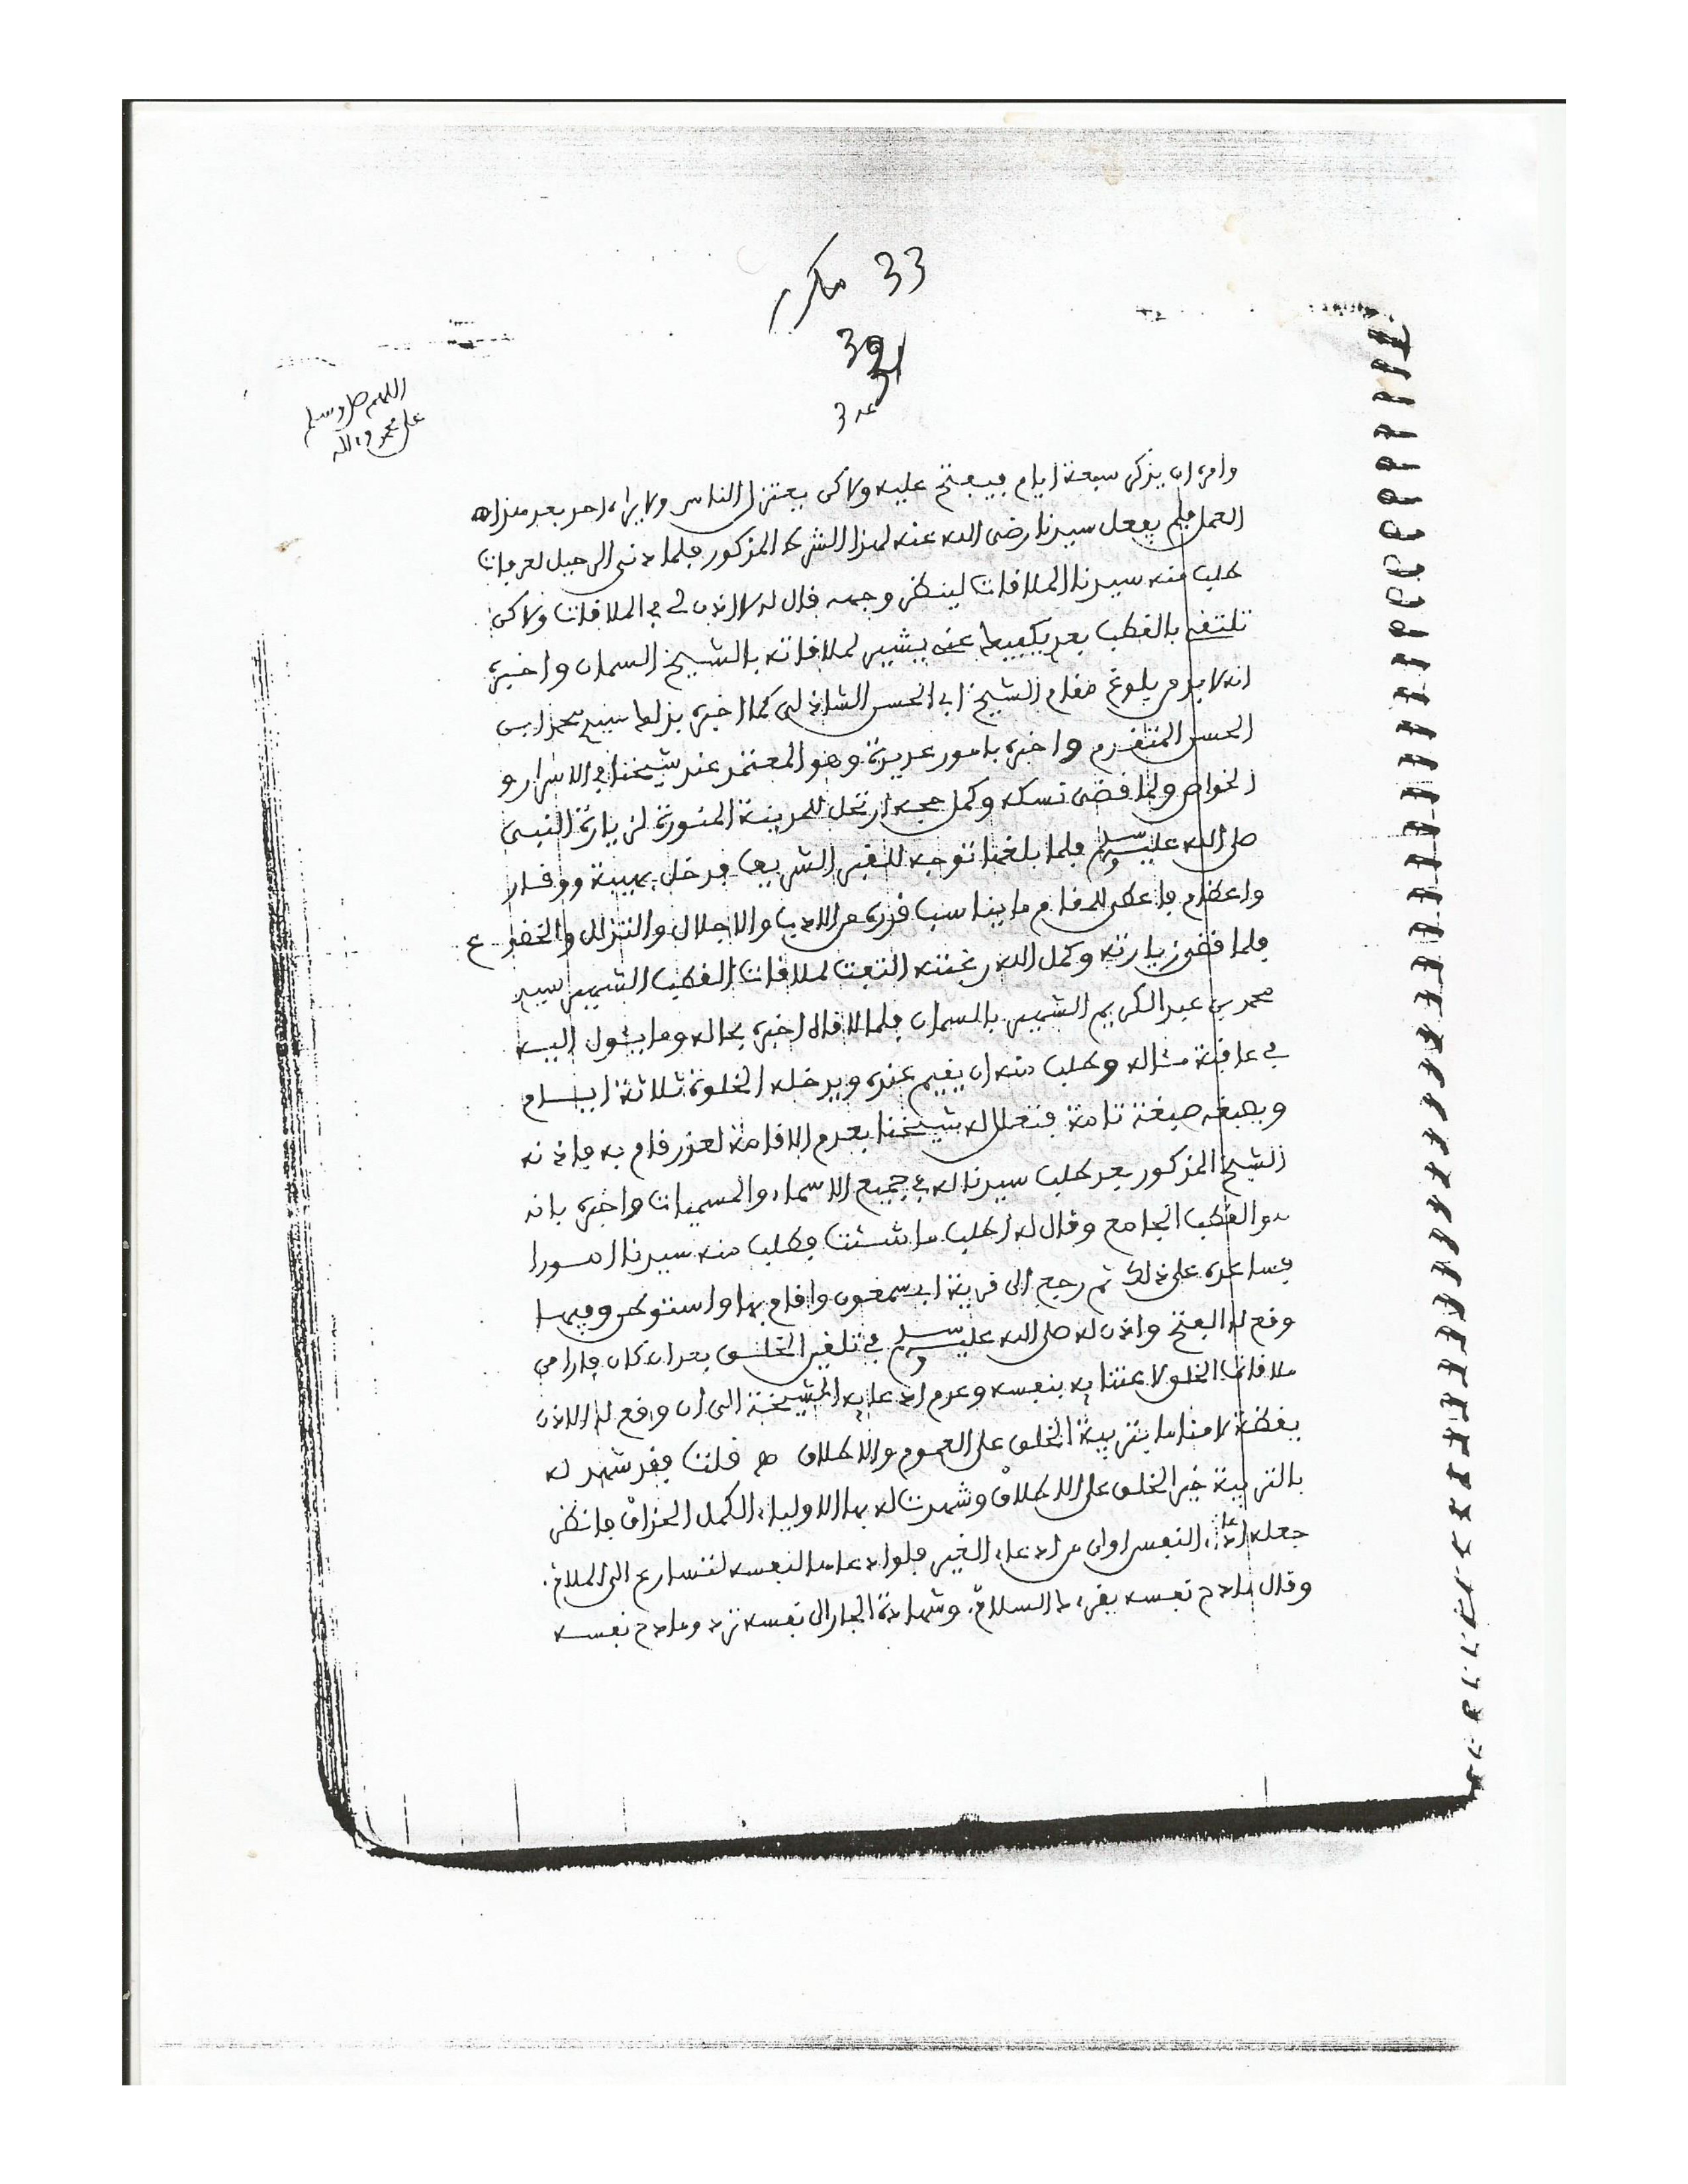 33 مكرر
39
عد 3
اللهم صل وسلم
على محمد وءاله
وامره ان يذكره سبعة ايام فيفتح عليه ولاكن يعتزل الناس ولا يراه احد بعد هذا
العمل فلم يفعل سيدنا رضى الله عنه لهذا الشرط المذكور فلما دنى الرحيل لعرفات
طلب منه سيدنا الملاقات لينظر وجهه قال له لا اذن لى فى الملاقات ولاكن
تلتقى بالقطب بعد يكفيك عنى يشير لملاقاته بالشيخ السمان واخبره
انه لا بد من بلوغ مقام الشيخ ابى الحسن الشاذلى كما اخبره بذلك سيد محمد ابن
الحسن المتقدم واخبره بامور عديدة وهو المعتمد عند شيخنا فى الاسرار و
الخواص ولما قضى نسكه وكمل حجه ارتحل للمدينة المنورة لزيارة النبى
صلى الله عليه وسلم فلما بلغها توجه للقبر الشريف فدخل بهيبة ووقار
واعظام فاعطى للمقام ما يناسب قدره من الادب والاجلال والتذلل والخضوع
فلما قضى زيارته وكمل الله رغبته التفت لملاقات القطب الشهير سيد
محمد بن عبد الكريم الشهير بالسمان فلما لاقاه اخبره بحاله وما يئول اليه
فى عاقبة مئاله وطلب منه ان يقيم عنده ويدخله الخلوة ثلاثة ايام
ويصبغه صبغة تامة فتعلل له شيخنا بعدم الاقامة لعذر قام به فاذنه
الشيخ المذكور بعد طلب سيدنا له فى جميع الاسماء والمسميات واخبره بانه
هو القطب الجامع وقال له اطلب ما شئت فطلب منه سيدنا امورا
فساعده على ذلك ثم رجع الى قرية ابى سمغون واقام بها واستوطن وفيها
وقع له الفتح واذن له صلى الله عليه وسلم فى تلقين الخلق بعد ان كان فارا من
ملاقات الخلق لاعتنايه بنفسه وعدم ادعايه المشيخة الى ان وقع له الاذن
يقظة لا مناما بتربية الخلق على العموم والاطلاق ه قلت فقد شهد له
بالتربية خير الخلق على الاطلاق وشهدت له بها الاولياء الكمل الحذاق فانظر
جعله ادعاء النفس اوان من ادعاء الغير فلو ادعاها لنفسه لتسارع الى الملاق.
وقال مادح نفسه يقرءك السلام. وشهادة الجار الى نفسه ترد ومادح نفسه